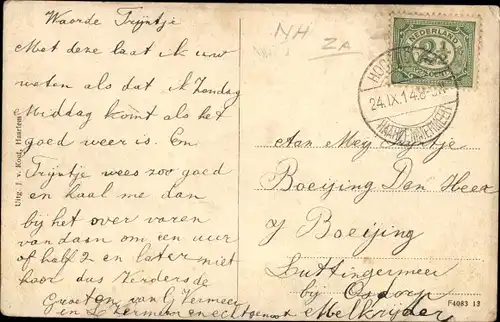 Waarde Trijntje
Met deze laat ik uw
weten als dat ik Zondag
Middag komt als het
goed weer is. En
Trijntje wees zoo goed
en haal me dan
bij het over varen
van daan om een uur
of half 2 en later niet
hoor dus Verders de
Groeten van G Vermeer
en echtgenoot
NH
ZA
NEDERLAND
2½
24.IX.14.8-
HAARLEMMERMEER
Aan Mej Trijntje
Boeijing Den Heer
J Boeijing
Luttingermeer
bij Osdorp
Melkryder
Uitg. J. v. Kool, Haarlem
F4083 13